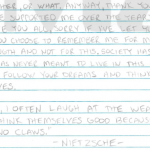 OR WHAT, ANYWAY, THANK YOU
SUPPORTED ME OVER THE YEARS
YOU ALL. SORRY IF I'VE LET
YOU CHOOSE TO REMEMBER ME FOR
AND NOT FOR THIS, SOCIETY HAS
WAS NEVER MEANT TO LIVE IN THIS
FOLLOW YOUR DREAMS AND THINK
I OFTEN LAUGH AT THE WEA
THINK THEMSELVES GOOD BECAUSE
NO CLAWS."
-NIETZSCHE-